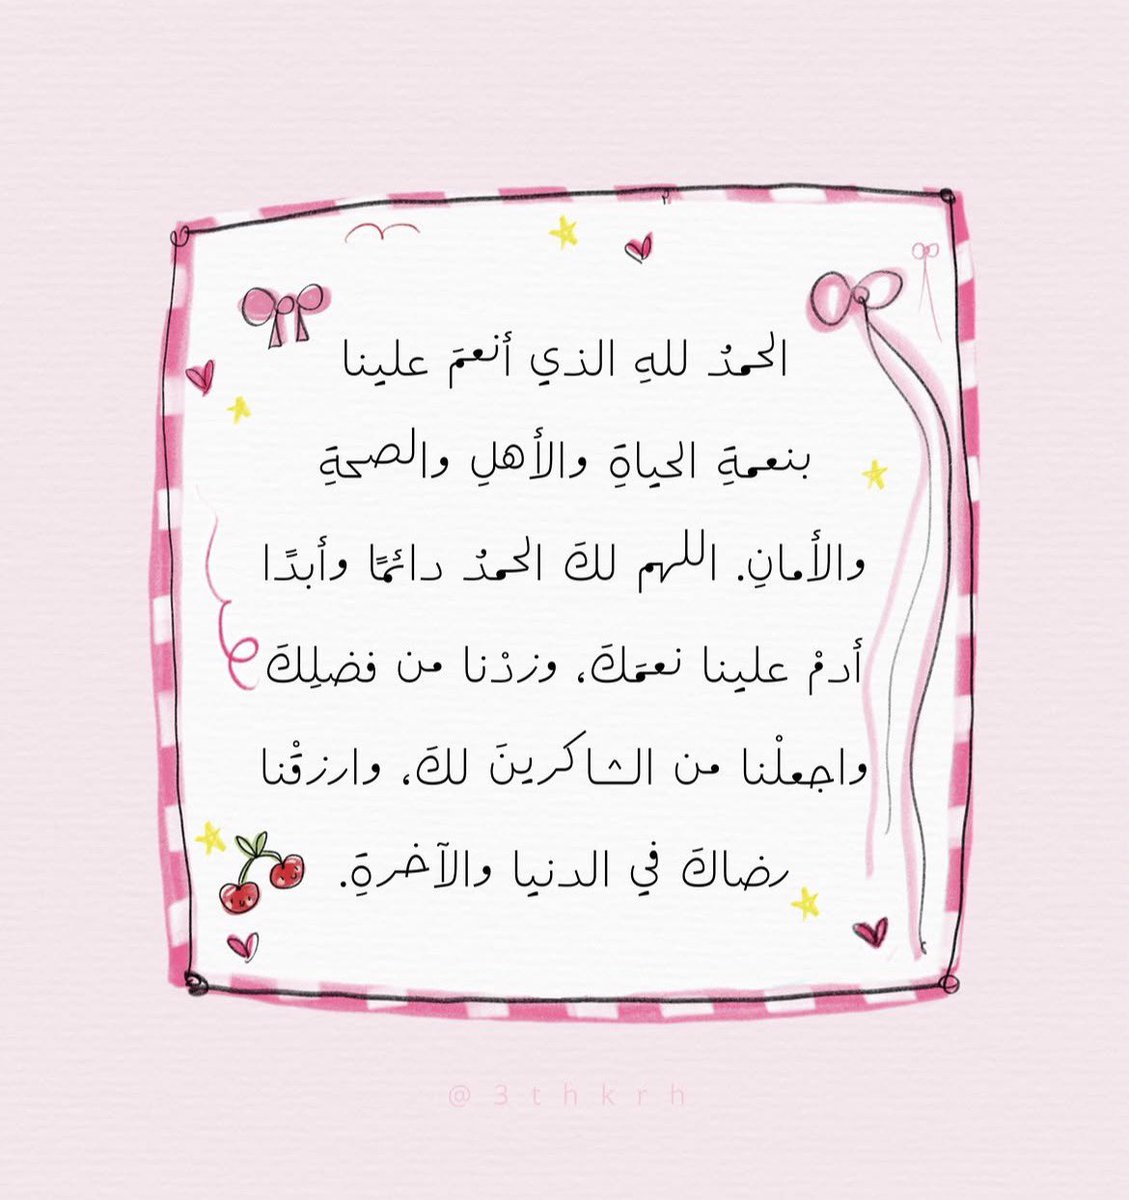 الحمدُ للهِ الذي أنعمَ علينا
بنعمةِ الحياةِ والأهلِ والصحةِ
والأمانِ. اللهم لكَ الحمدُ دائمًا وأبدًا
أدمْ علينا نعمَكَ، وزدْنا من فضلِكَ
واجعلْنا من الشاكرينَ لكَ، وارزقْنا
رضاكَ في الدنيا والآخرةِ.
@3thkrh